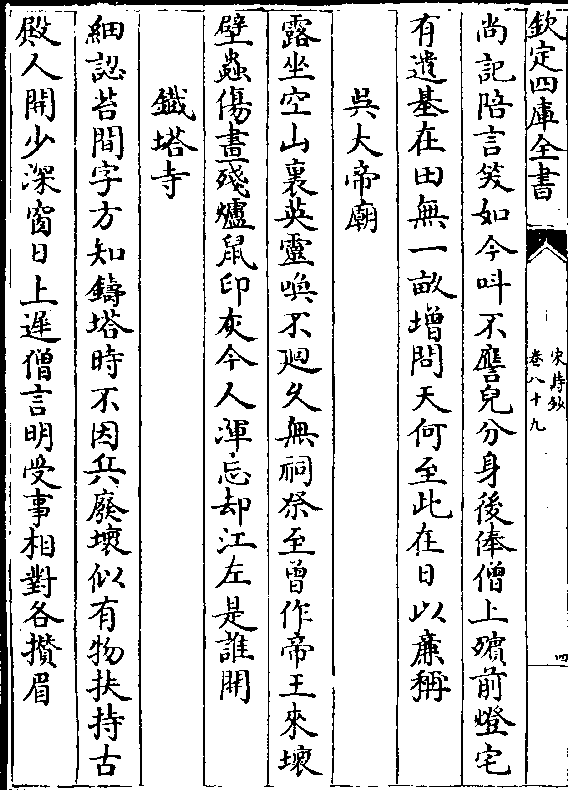 欽定四庫全書
宋詩鈔
卷八十九
四
尚記陪言笑如今呌不譍兒分身後俸僧上殯前燈宅
有遺基在田無一畝增問天何至此在日以亷稱
吳大帝廟
露坐空山裏英靈喚不廻久無祠祭至曾作帝王來壞
壁蟲傷畫殘爐鼠印灰今人渾忘却江左是誰開
鐵塔寺
細認苔間字方知鑄塔時不因兵廢壞似有物扶持古
殿人開少深窗日上遲僧言明受事相對各攢眉